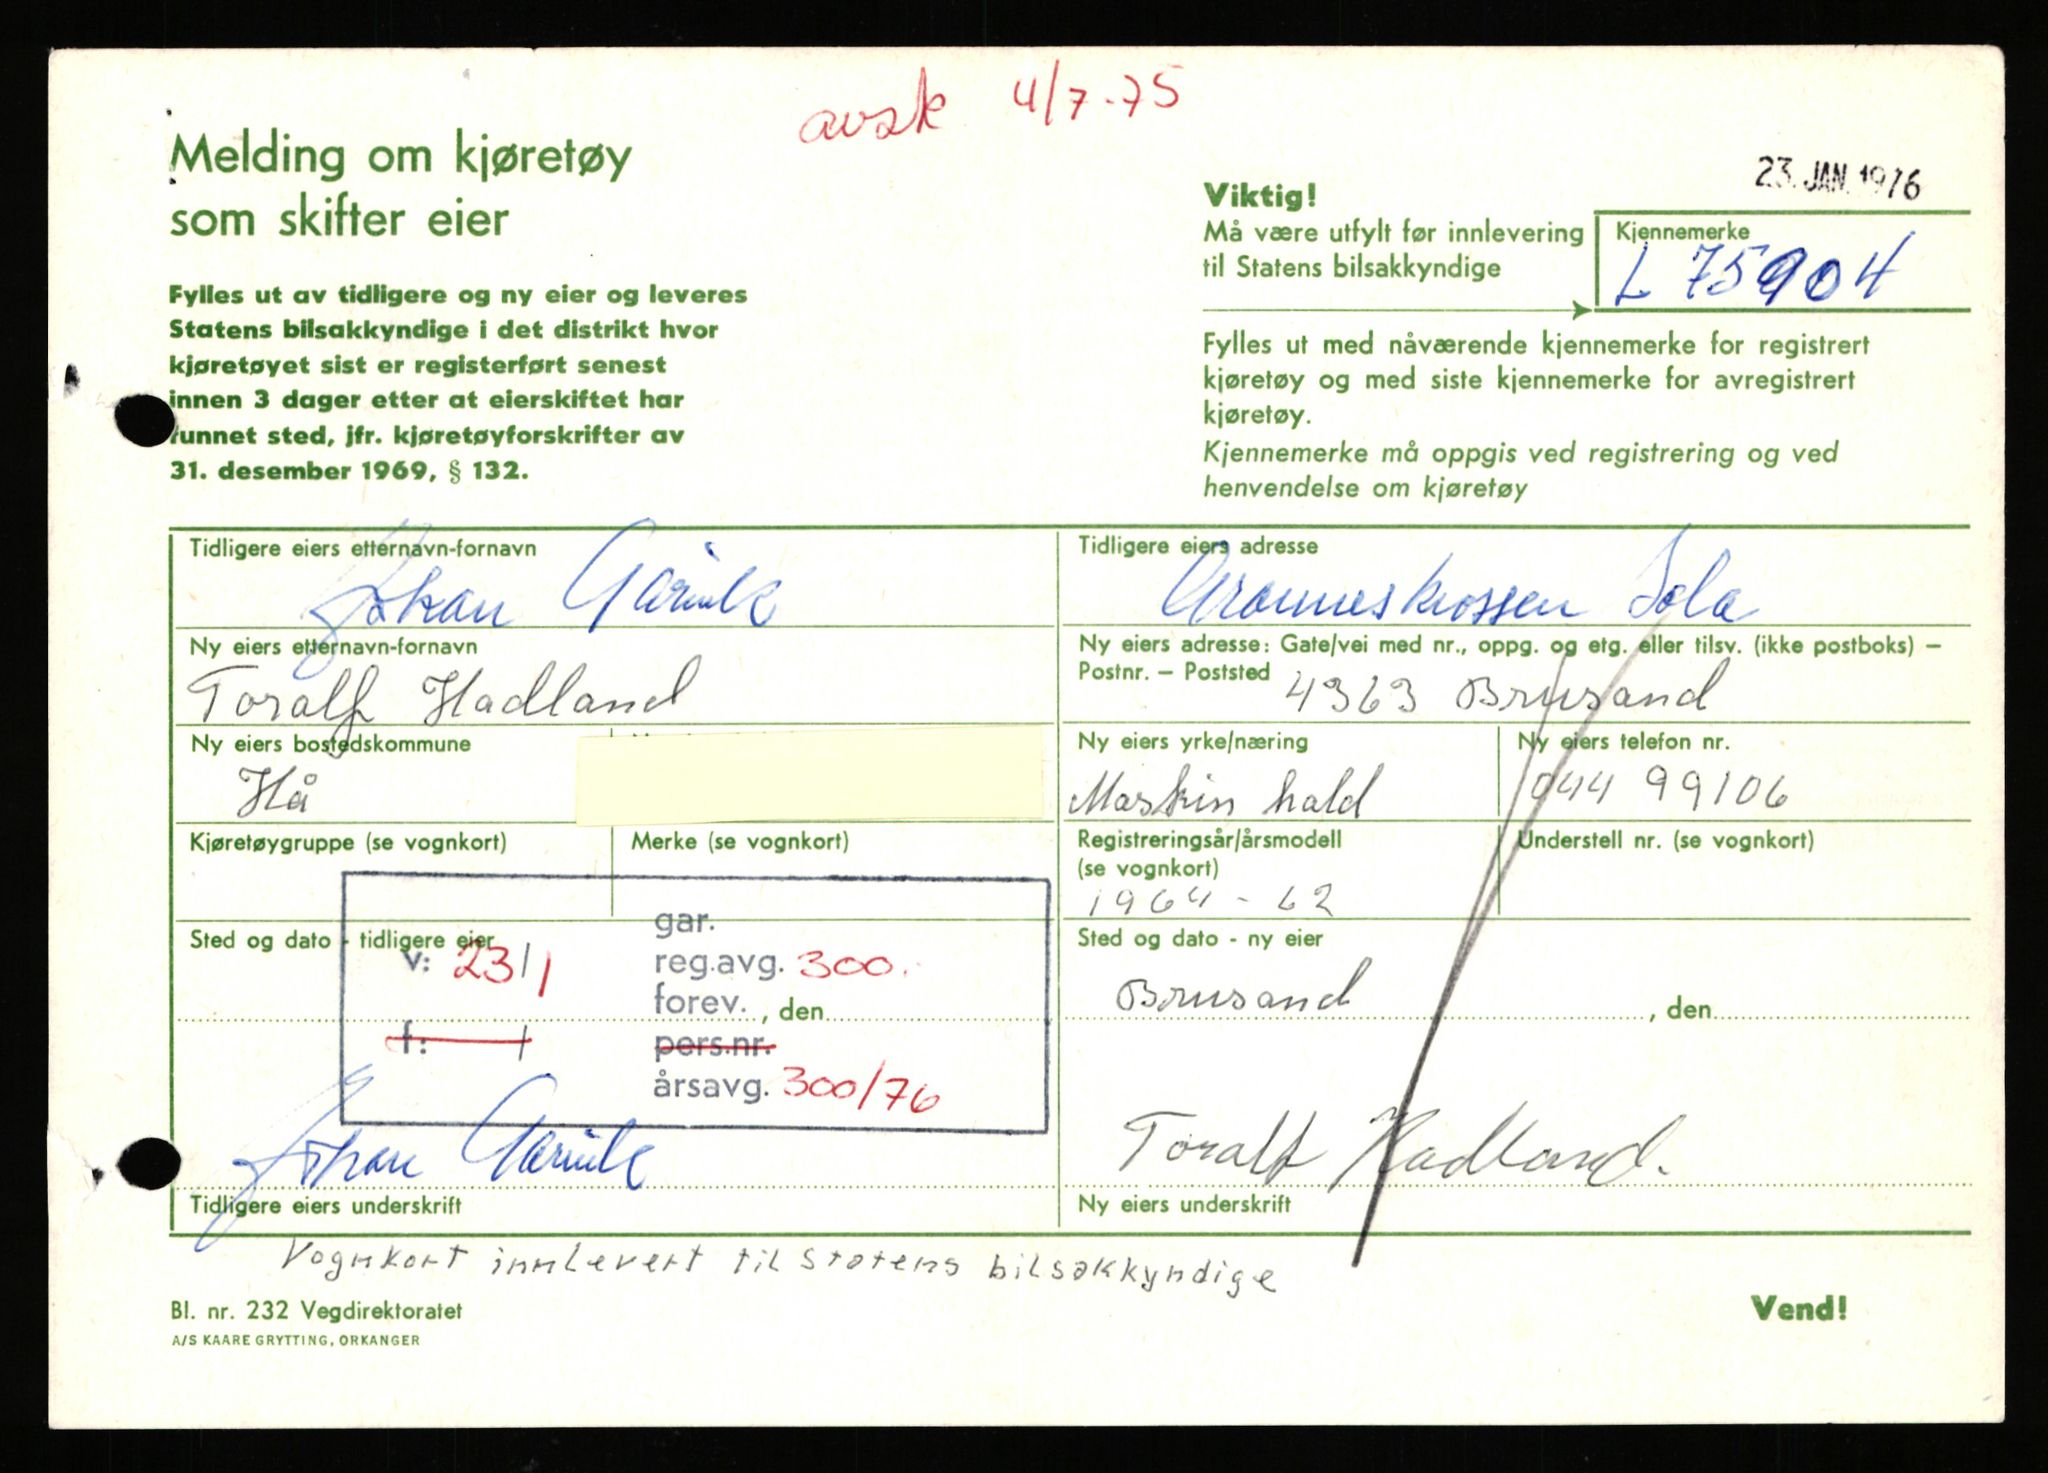 avsk 4/7-75
Melding om kjøretøy
som skifter eier
23. JAN. 1976
Viktig!
Må være utfylt før innlevering
til Statens bilsakkyndige
Kjennemerke
L 75904
Fylles ut av tidligere og ny eier og leveres
Statens bilsakkyndige i det distrikt hvor
kjøretøyet sist er registerført senest
innen 3 dager etter at eierskiftet har
funnet sted, jfr. kjøretøyforskrifter av
31. desember 1969, § 132.
Fylles ut med nåværende kjennemerke for registrert
kjøretøy og med siste kjennemerke for avregistrert
kjøretøy.
Kjennemerke må oppgis ved registrering og ved
henvendelse om kjøretøy
Tidligere eiers etternavn-fornavn
Johan
Tidligere eiers adresse
Sola
Ny eiers etternavn-fornavn
Toralf Hadland
Ny eiers adresse: Gate/vei med nr., oppg. og etg. eller tilsv. (ikke postboks) –
Postnr. – Poststed 4363 Brusand
Ny eiers bostedskommune
Hå
Ny eiers yrke/næring
Maskin hald
Ny eiers telefon nr.
044 99106
Kjøretøygruppe (se vognkort)
Merke (se vognkort)
Registreringsår/årsmodell
(se vognkort)
1964 - 62
Understell nr. (se vognkort)
Sted og dato - tidligere eier
v: 23/1
f: /
gar.
reg.avg. 300.
forev.
, den
pers.nr.
årsavg. 300/76
Sted og dato - ny eier
Brusand , den
Johan
Tidligere eiers underskrift
Toralf Hadland.
Ny eiers underskrift
Vognkort innlevert til Statens bilsakkyndige
Bl. nr. 232 Vegdirektoratet
A/S KAARE GRYTTING, ORKANGER
Vend!